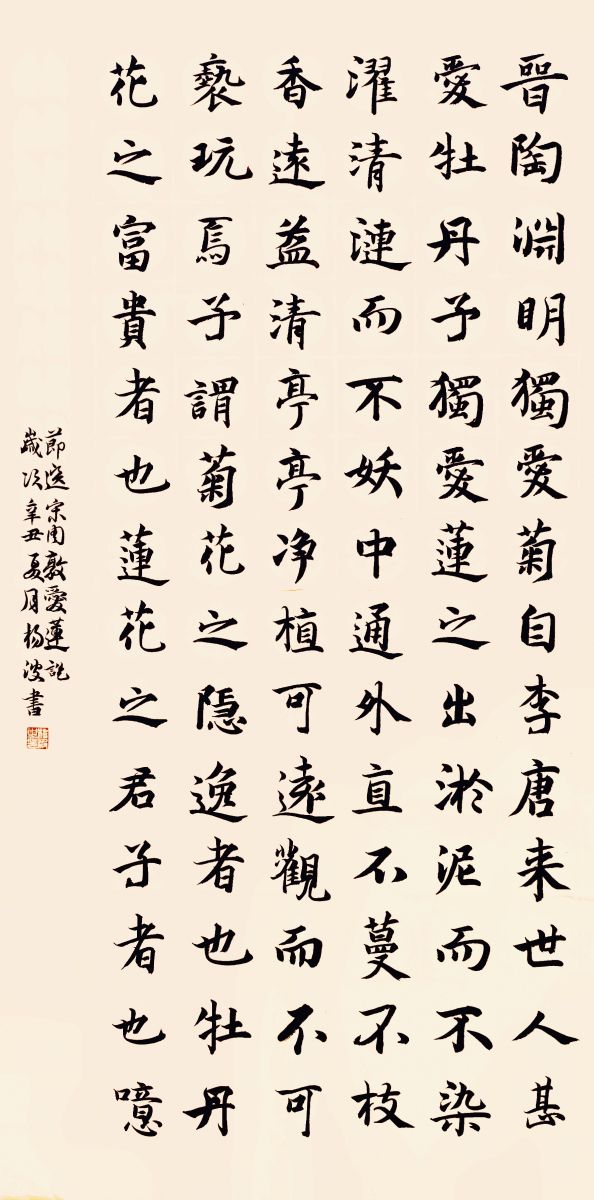 晉陶淵明獨愛菊自李唐来世人甚
愛牡丹予獨愛蓮之出淤泥而不染
濯清漣而不妖中通外直不蔓不枝
香遠益清亭亭净植可遠觀而不可
褻玩焉予謂菊花之隠逸者也牡丹
花之富貴者也蓮花之君子者也噫
節選宋周敦愛蓮説
歲次辛丑夏月楊波書